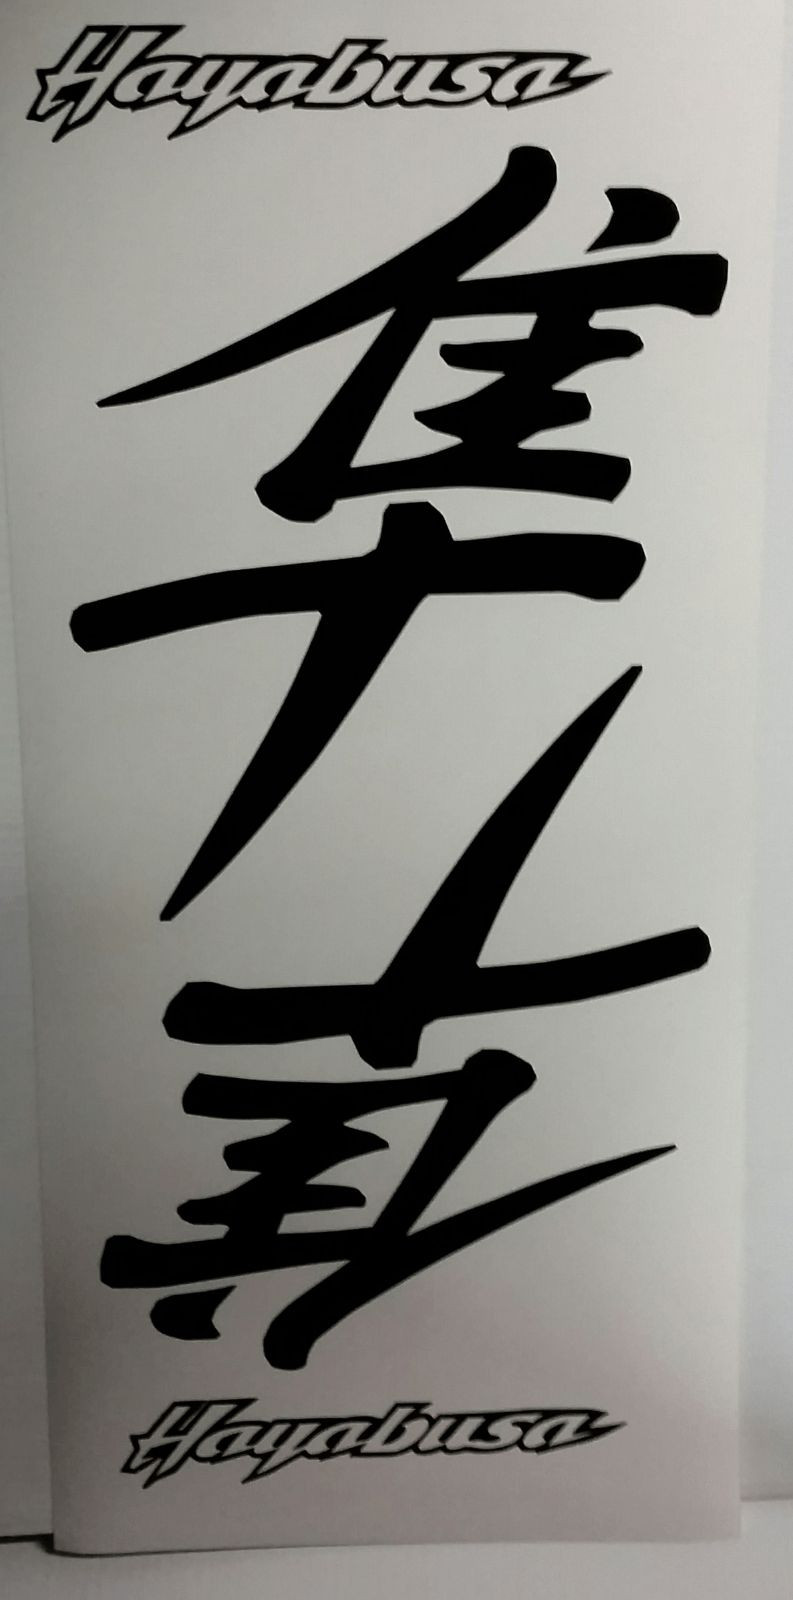 Hayabusa
隼
隼
Hayabusa